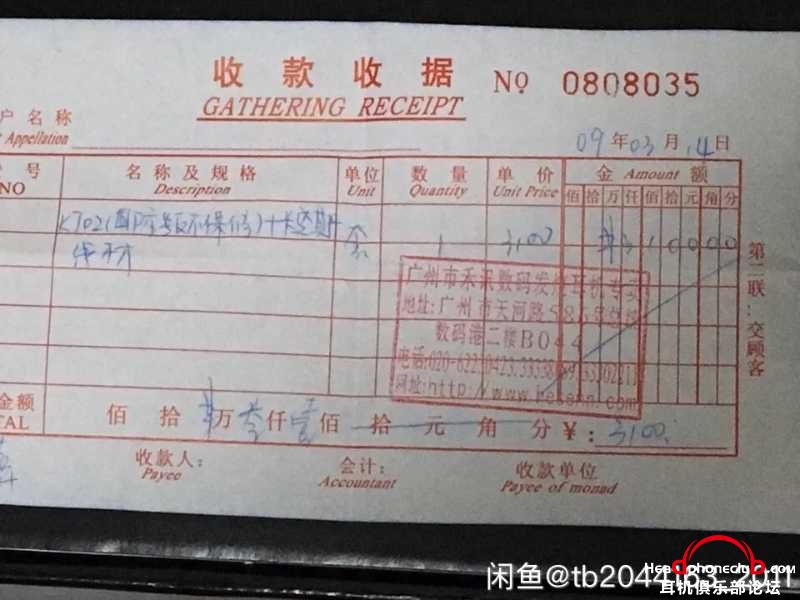 收款收据 No 0808035
GATHERING RECEIPT
户名称
Appellation
09年03月14日
号 名称及规格 单位 数量 单价 金 Amount 额
NO Description Unit Quantity Unit Price 佰拾万仟佰拾元角分
K702( 不保修)+卡达斯 套 1 3100 ¥310000
线材
广州市禾米数码发烧耳机专卖
地址:广州市天河路586号总统
数码港二楼B044
电话:020-622
网址:http://www.
第二联:交顾客
金额 佰 拾 万叁仟壹佰 拾 元 角 分 ¥: 3100.
TAL
收款人: 会计: 收款单位
Payee Accountant Payee of monad
闲鱼@tb2044163_2011
Headphoneclub.com
耳机俱乐部论坛